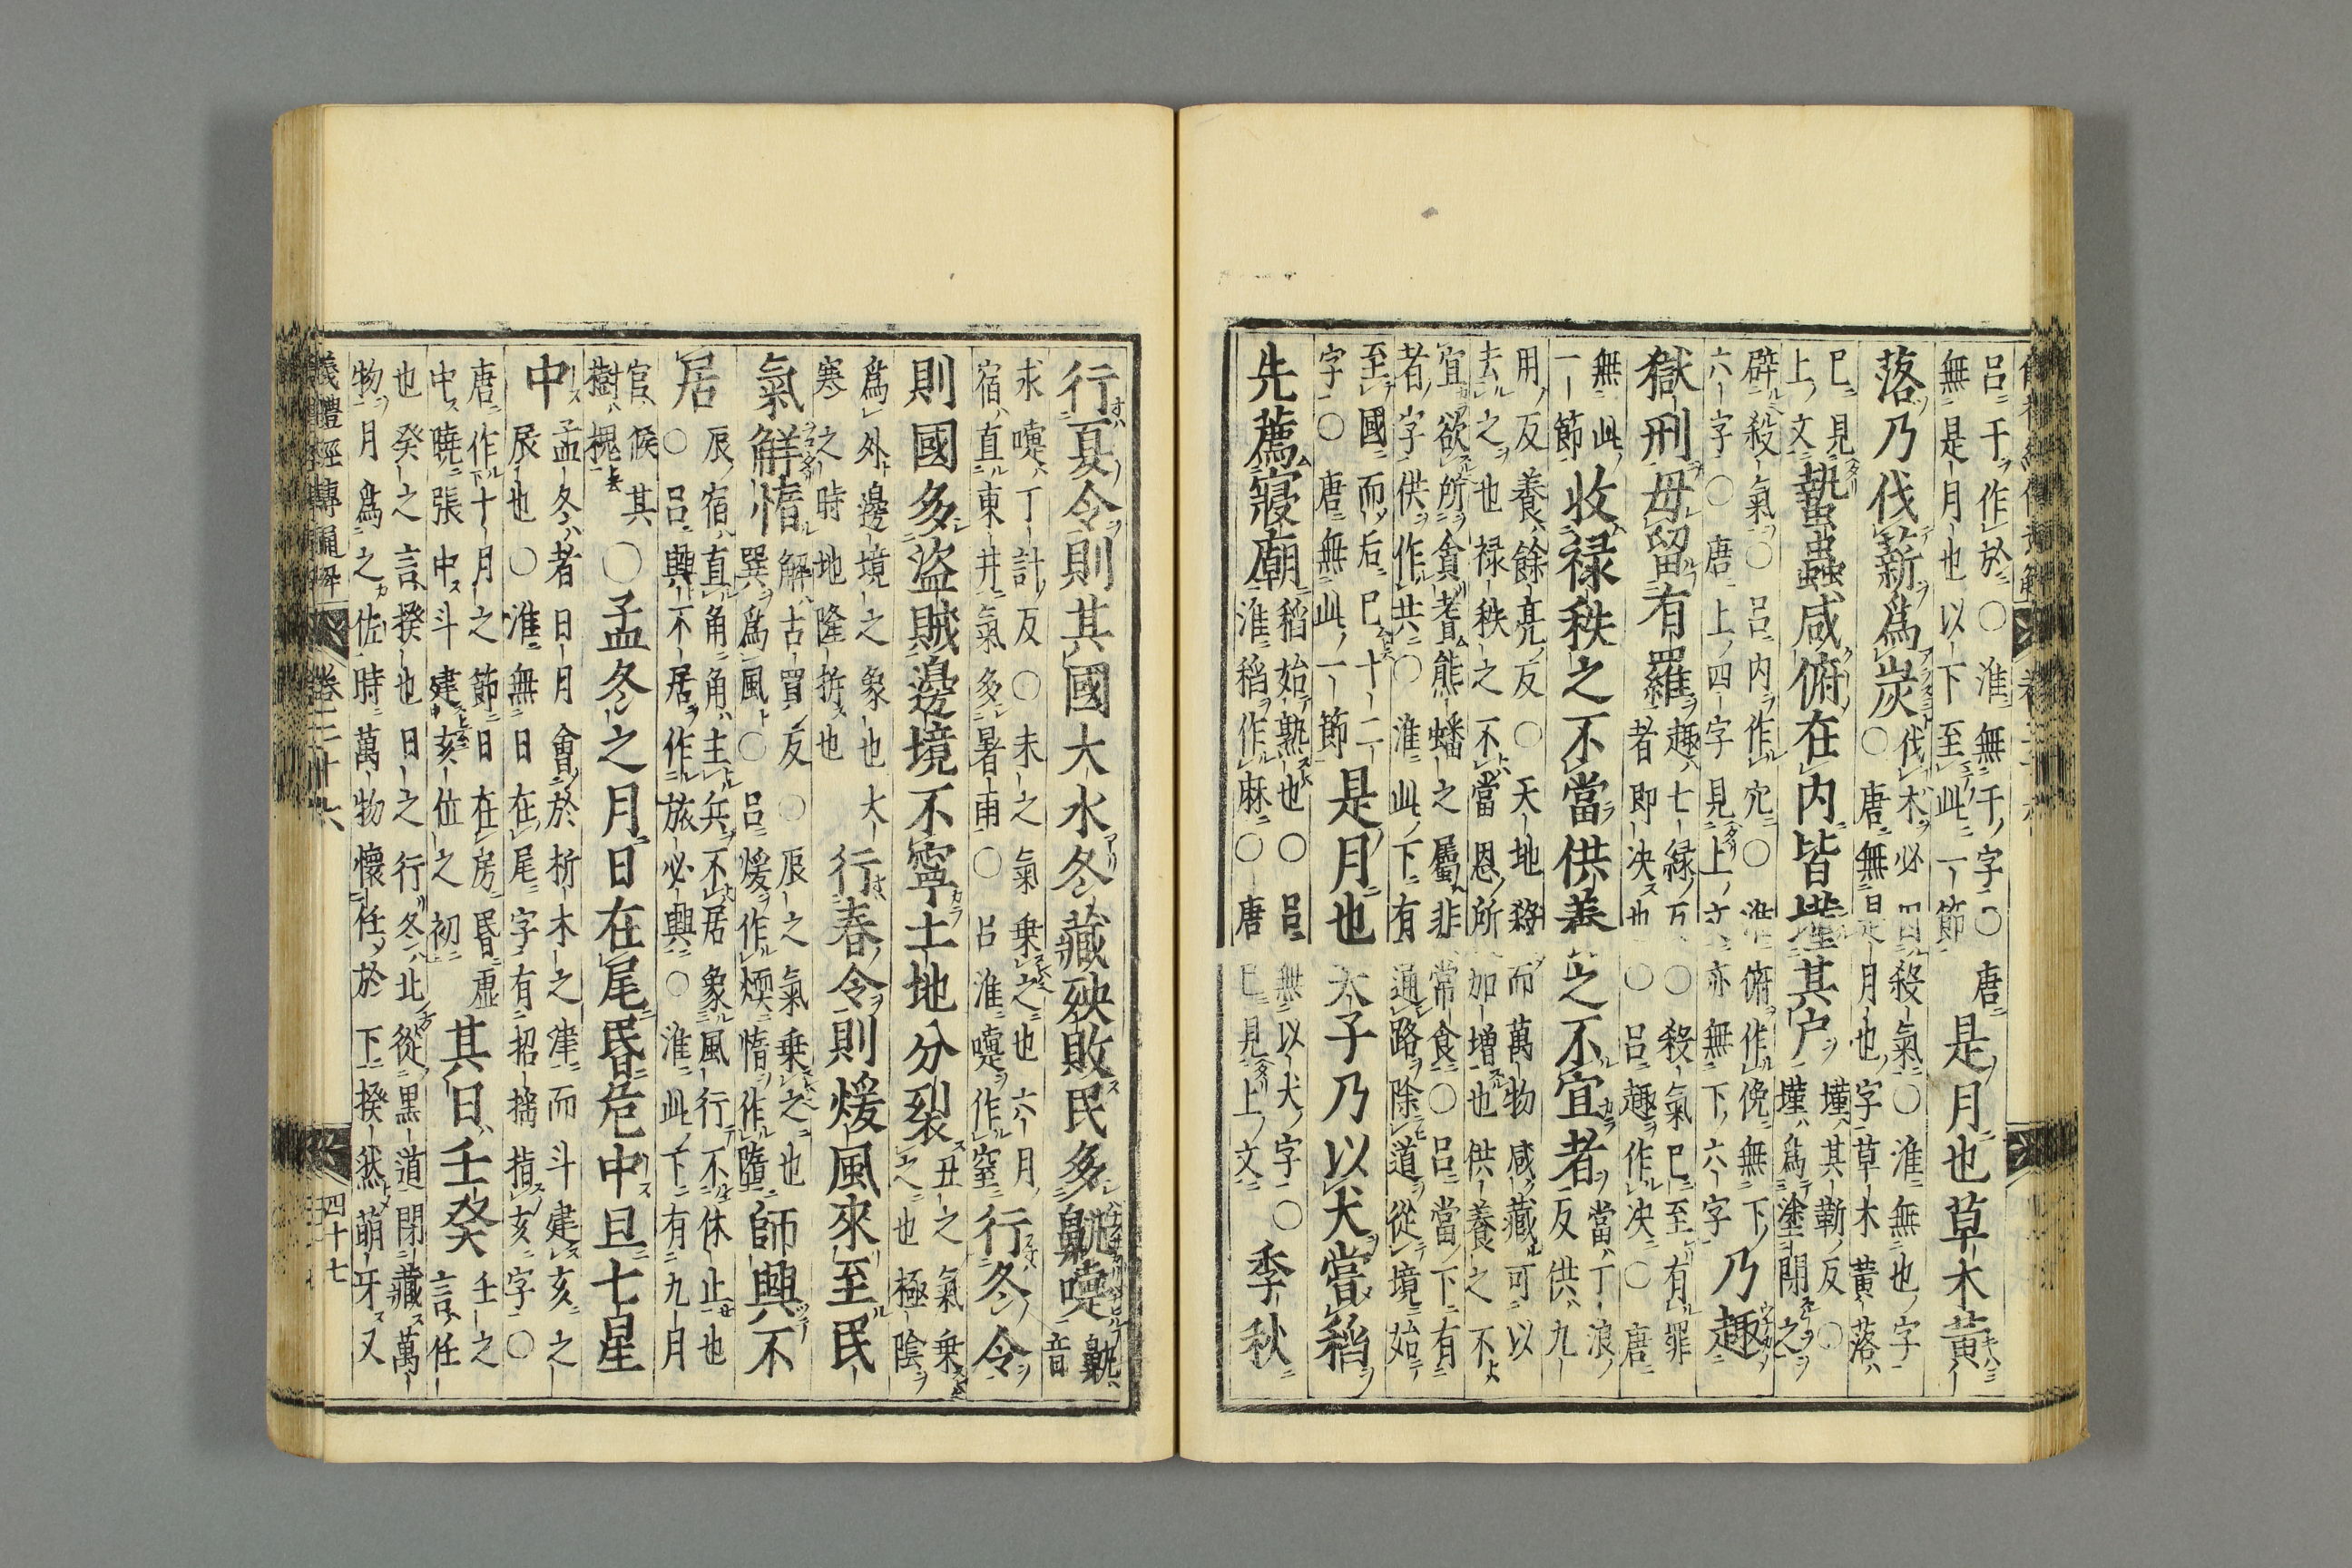 呂于作於○淮無于字○唐
無是月也以下至此一節
是月也草木黃
落乃伐薪爲炭
伐木必因殺氣○淮無也字
○唐無是月也字草木黃落
已見
上文
蟄蟲咸俯在内皆墐其户
墐其靳反○
墐爲塗閉之
辟殺氣○呂内作穴○淮俯作俛無下
六字○唐上四字見上文亦無下六字
乃趣
獄刑毋留有羅
趣七緑反○殺氣已至有罪
者即决也○呂趣作决○唐
無此
一節
收禄秩之不當供養之不宜者
當丁浪
反供九
用反養餘亮反○天地殺而萬物咸藏可以
去之也禄秩之不當恩所加増也供養之不
宜欲所貪耆熊蟠之屬非常食○呂當下有
者字供作共○淮此下有通路除道從境始
至國而后已十二
字○唐無此一節
是月也天子乃以犬嘗稻
先薦寢廟
稻始熟也○呂無以犬字○
淮稻作麻○唐已見上文
季秋
行夏令則其國大水冬藏殃敗民多鼽嚏
鼽
音
求嚏丁計反○未之氣乗之也六月
宿直東井氣多暑雨○呂淮嚏作窒
行冬令
則國多盗賊邊境不寧土地分裂
丑之氣乗
之也極陰
爲外邊境之象也大
寒之時地隆拆也
行春令則煖風來至民
氣解惰
解古買反○辰之氣乗之也
巽爲風○呂煖作煗惰作隨
師興不
居
辰宿直角角主兵不居象風行不休止也
○呂興不居作旅必興○淮此下有九月
官候其
樹槐
○孟冬之月日在尾昏危中旦七星
中
孟冬者日月會於析木之津而斗建亥之
辰也○淮無日在尾字有招摇指亥字○
唐作十月之節日在房昏虚
中曉張中斗建亥位之初
其日壬癸
壬之
言任
也癸之言揆也日之行冬北從黒道閉藏萬
物月爲之佐時萬物懷任於下揆然萌牙又
儀禮經傳通解 卷二十六 四十七